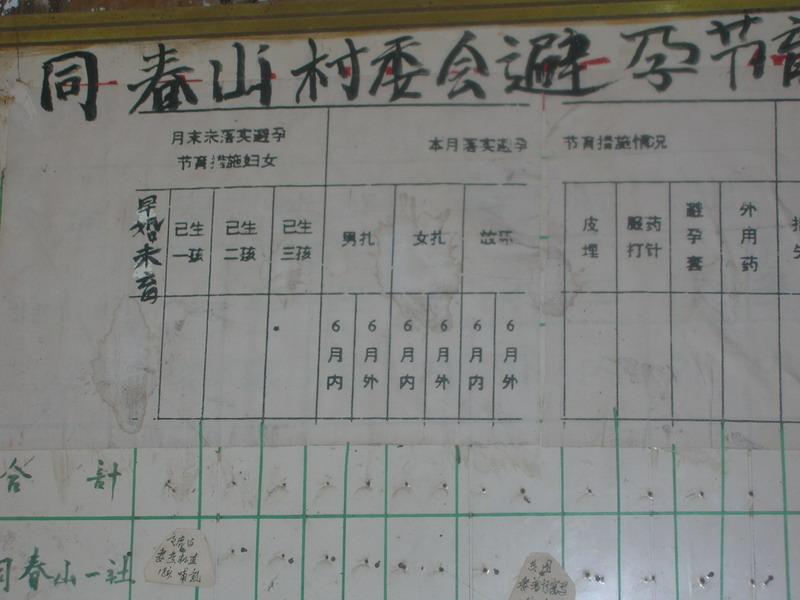 同春山村委会避孕节育
月末未落实避孕
节育措施妇女
本月落实避孕 节育措施情况
早婚未育
已生一孩
已生二孩
已生三孩
男扎
女扎
放乐
皮埋
服药打针
避孕套
外用药
6月内
6月外
6月内
6月外
6月内
6月外
合計
同春山一社